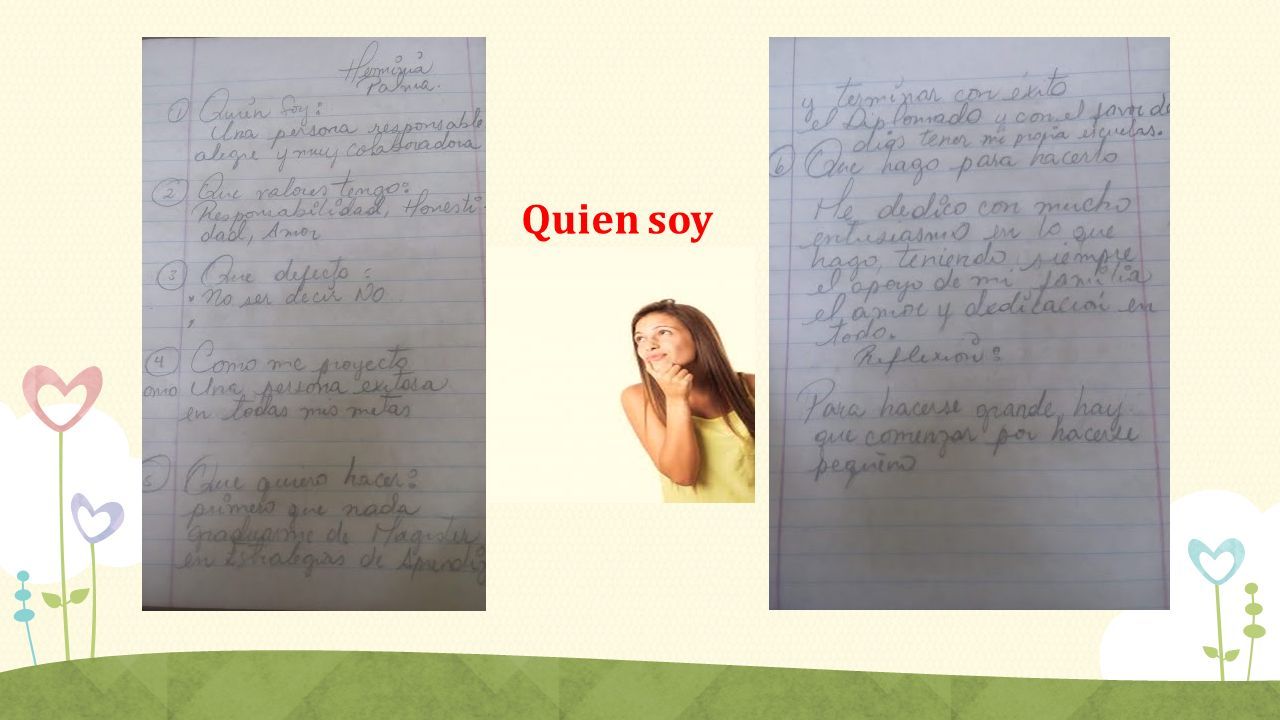 Herminia
Palma.
① Quién Soy:
Una persona responsable
alegre y muy colaboradora
② Que valores tengo:
Responsabilidad, Honesti-
dad, Amor
③ Que defecto:
* No ser decir NO
④ Como me proyecto
omo Una persona exitosa
en todas mis metas
5 Que quiero hacer:
primero que nada
graduarme de Magister
en Estrategias de Aprendiz
Quien soy
y terminar con éxito
el Diplomado y con el favor de
dios tener mi propia escuelas.
⑥ Que hago para hacerlo
Me dedico con mucho
entusiasmo en lo que
hago, teniendo siempre
el apoyo de mi familia
el amor y dedicación en
todo.
Reflexión:
Para hacerse grande hay
que comenzar por hacerse
pequeño